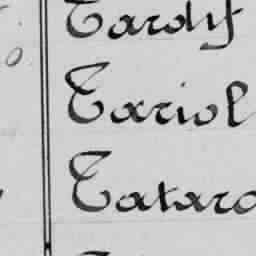 Tardif
Tariol
Tataro